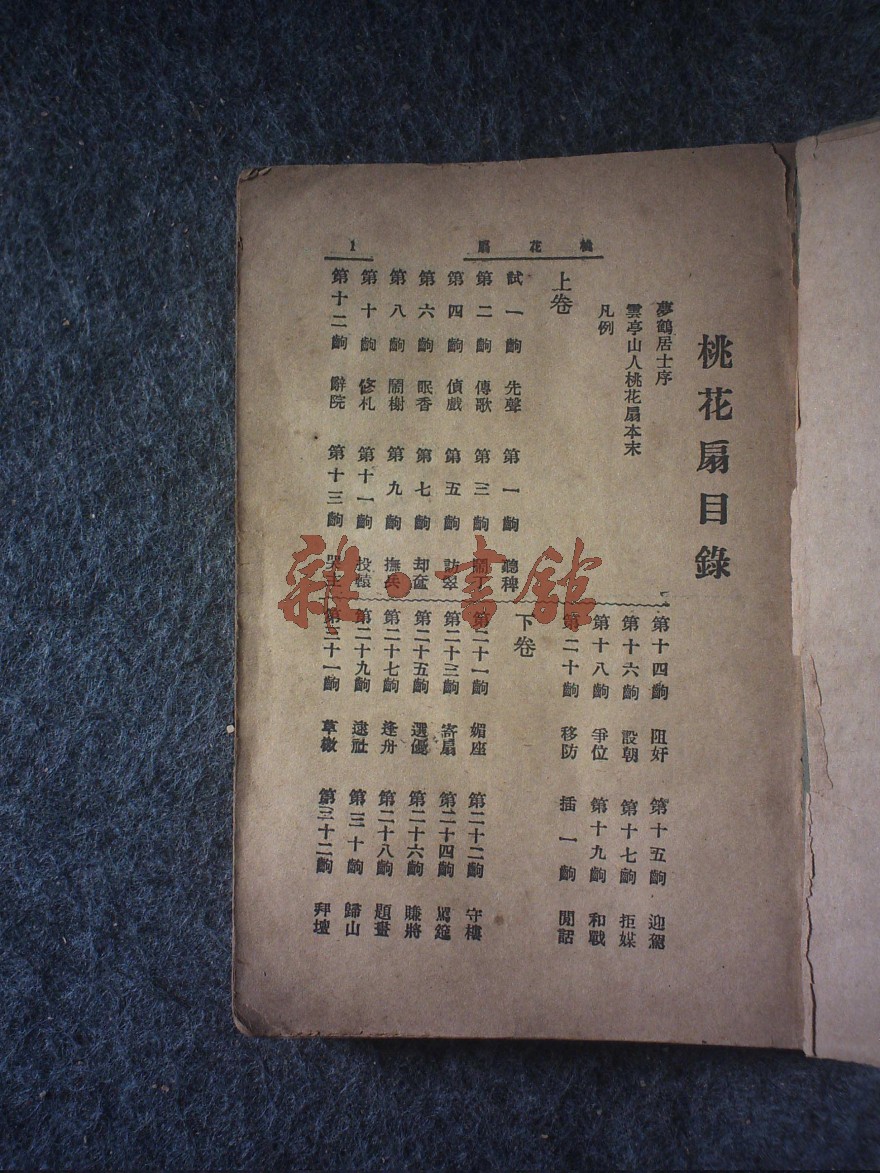 桃花扇
1
桃花扇目錄
夢鶴居士序
雲亭山人桃花扇本末
凡例
上卷
試一齣 先聲 第一齣 聽稗
第二齣 傳歌 第三齣 丁
第四齣 偵戲 第五齣 訪翠
第六齣 眠香 第七齣 却奩
第八齣 鬧榭 第九齣 撫兵
第十齣 修札 第十一齣 投轅
第十二齣 辭院 第十三齣 哭主
第十四齣 阻奸 第十五齣 迎駕
第十六齣 設朝 第十七齣 拒媒
第十八齣 爭位 第十九齣 和戰
第二十齣 移防 插一齣 閒話
下卷
第二十一齣 媚座 第二十二齣 守樓
第二十三齣 寄扇 第二十四齣 罵筵
第二十五齣 選優 第二十六齣 賺將
第二十七齣 逢舟 第二十八齣 題畫
第二十九齣 逮社 第三十齣 歸山
第三十一齣 草檄 第三十二齣 拜壇
雜·書館